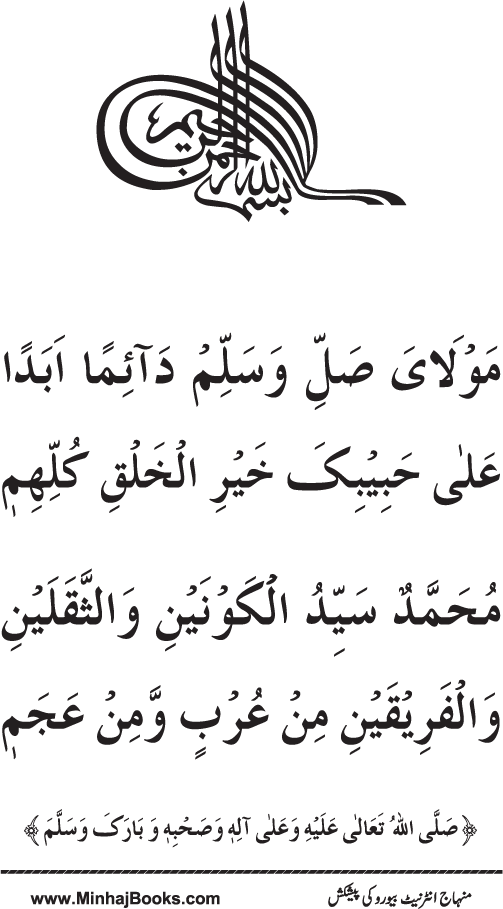 بسم الله الرحمن الرحيم
مَوْلَايَ صَلِّ وَسَلِّمْ دَآئِمًا اَبَدًا
عَلٰى حَبِيْبِکَ خَيْرِ الْخَلْقِ کُلِّهِمِ
مُحَمَّدٌ سَيِّدُ الْکَوْنَيْنِ وَالثَّقَلَيْنِ
وَالْفَرِيْقَيْنِ مِنْ عُرْبٍ وَّمِنْ عَجَمِ
﴿ صَلَّی اللهُ تَعَالٰی عَلَيْهِ وَعَلٰی آلِهٖ وَصَحْبِهٖ وَ بَارَکَ وَسَلَّمَ ﴾
منہاج انٹرنیٹ بیورو کی پیشکش
www.MinhajBooks.com